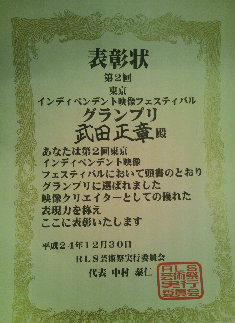 表彰状
第2回
東京
インディペンデント映像フェスティバル
グランプリ
武田正章殿
あなたは第2回東京
インディペンデント映像
フェスティバルにおいて頭書のとおり
グランプリに選ばれました
映像クリエイターとしての優れた
表現力を称え
ここに表彰いたします
平成24年12月30日
RLS芸術祭実行委員会
代表 中村 泰仁
RLS
芸術祭
実行
委員会